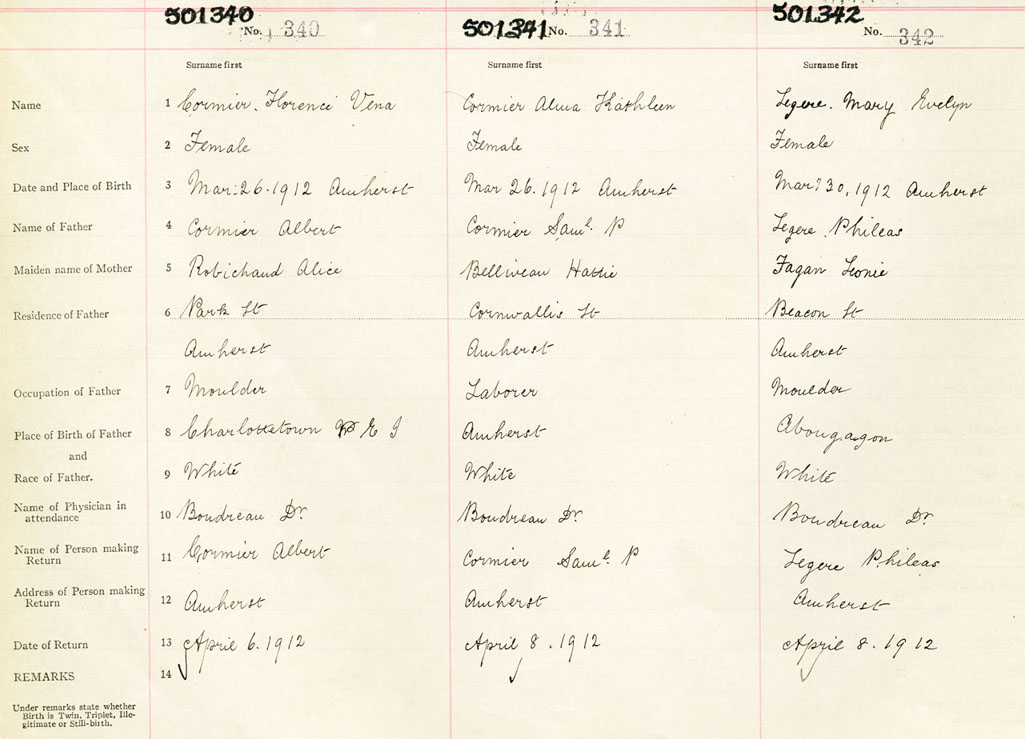 501340 501341 501342
No. 340 No. 341 No. 342
Surname first Surname first Surname first
Name 1 Cormier. Florence Vena Cormier Alma Kathleen Legere. Mary Evelyn
Sex 2 Female Female Female
Date and Place of Birth 3 Mar: 26. 1912 Amherst Mar 26. 1912 Amherst Mar: 30, 1912 Amherst
Name of Father 4 Cormier Albert Cormier Saml. P Legere Phileas
Maiden name of Mother 5 Robichaud Alice Belliveau Hattie Fagan Leonie
Residence of Father 6 Park St Cornwallis St Beacon St
Amherst Amherst Amherst
Occupation of Father 7 Moulder Laborer Moulder
Place of Birth of Father 8 Charlottetown P E I Amherst Abougagon
and
Race of Father. 9 White White White
Name of Physician in
attendance 10 Boudreau Dr. Boudreau Dr. Boudreau Dr.
Name of Person making
Return 11 Cormier Albert Cormier Saml. P Legere Phileas
Address of Person making
Return 12 Amherst Amherst Amherst
Date of Return 13 April 6. 1912 April 8. 1912 April 8. 1912
REMARKS 14
Under remarks state whether
Birth is Twin, Triplet, Ille-
gitimate or Still-birth.